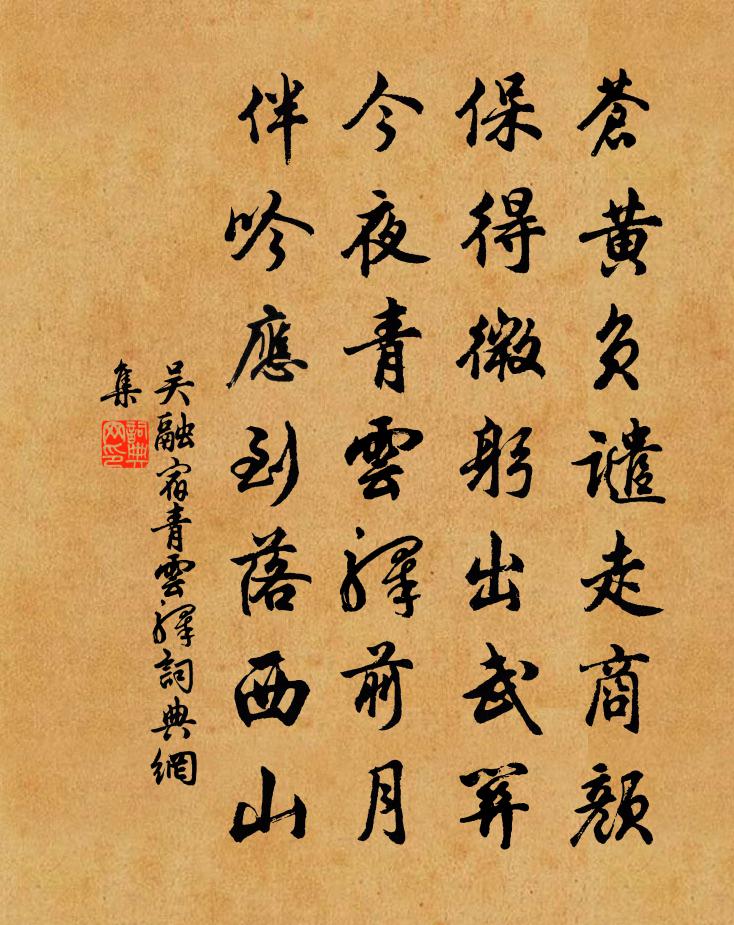 蒼黃負譴走商顏
保得微躬出武關
今夜青雲驛前月
伴吟應到落西山
吳融宿青雲驛詞典網
集
詞典
网印